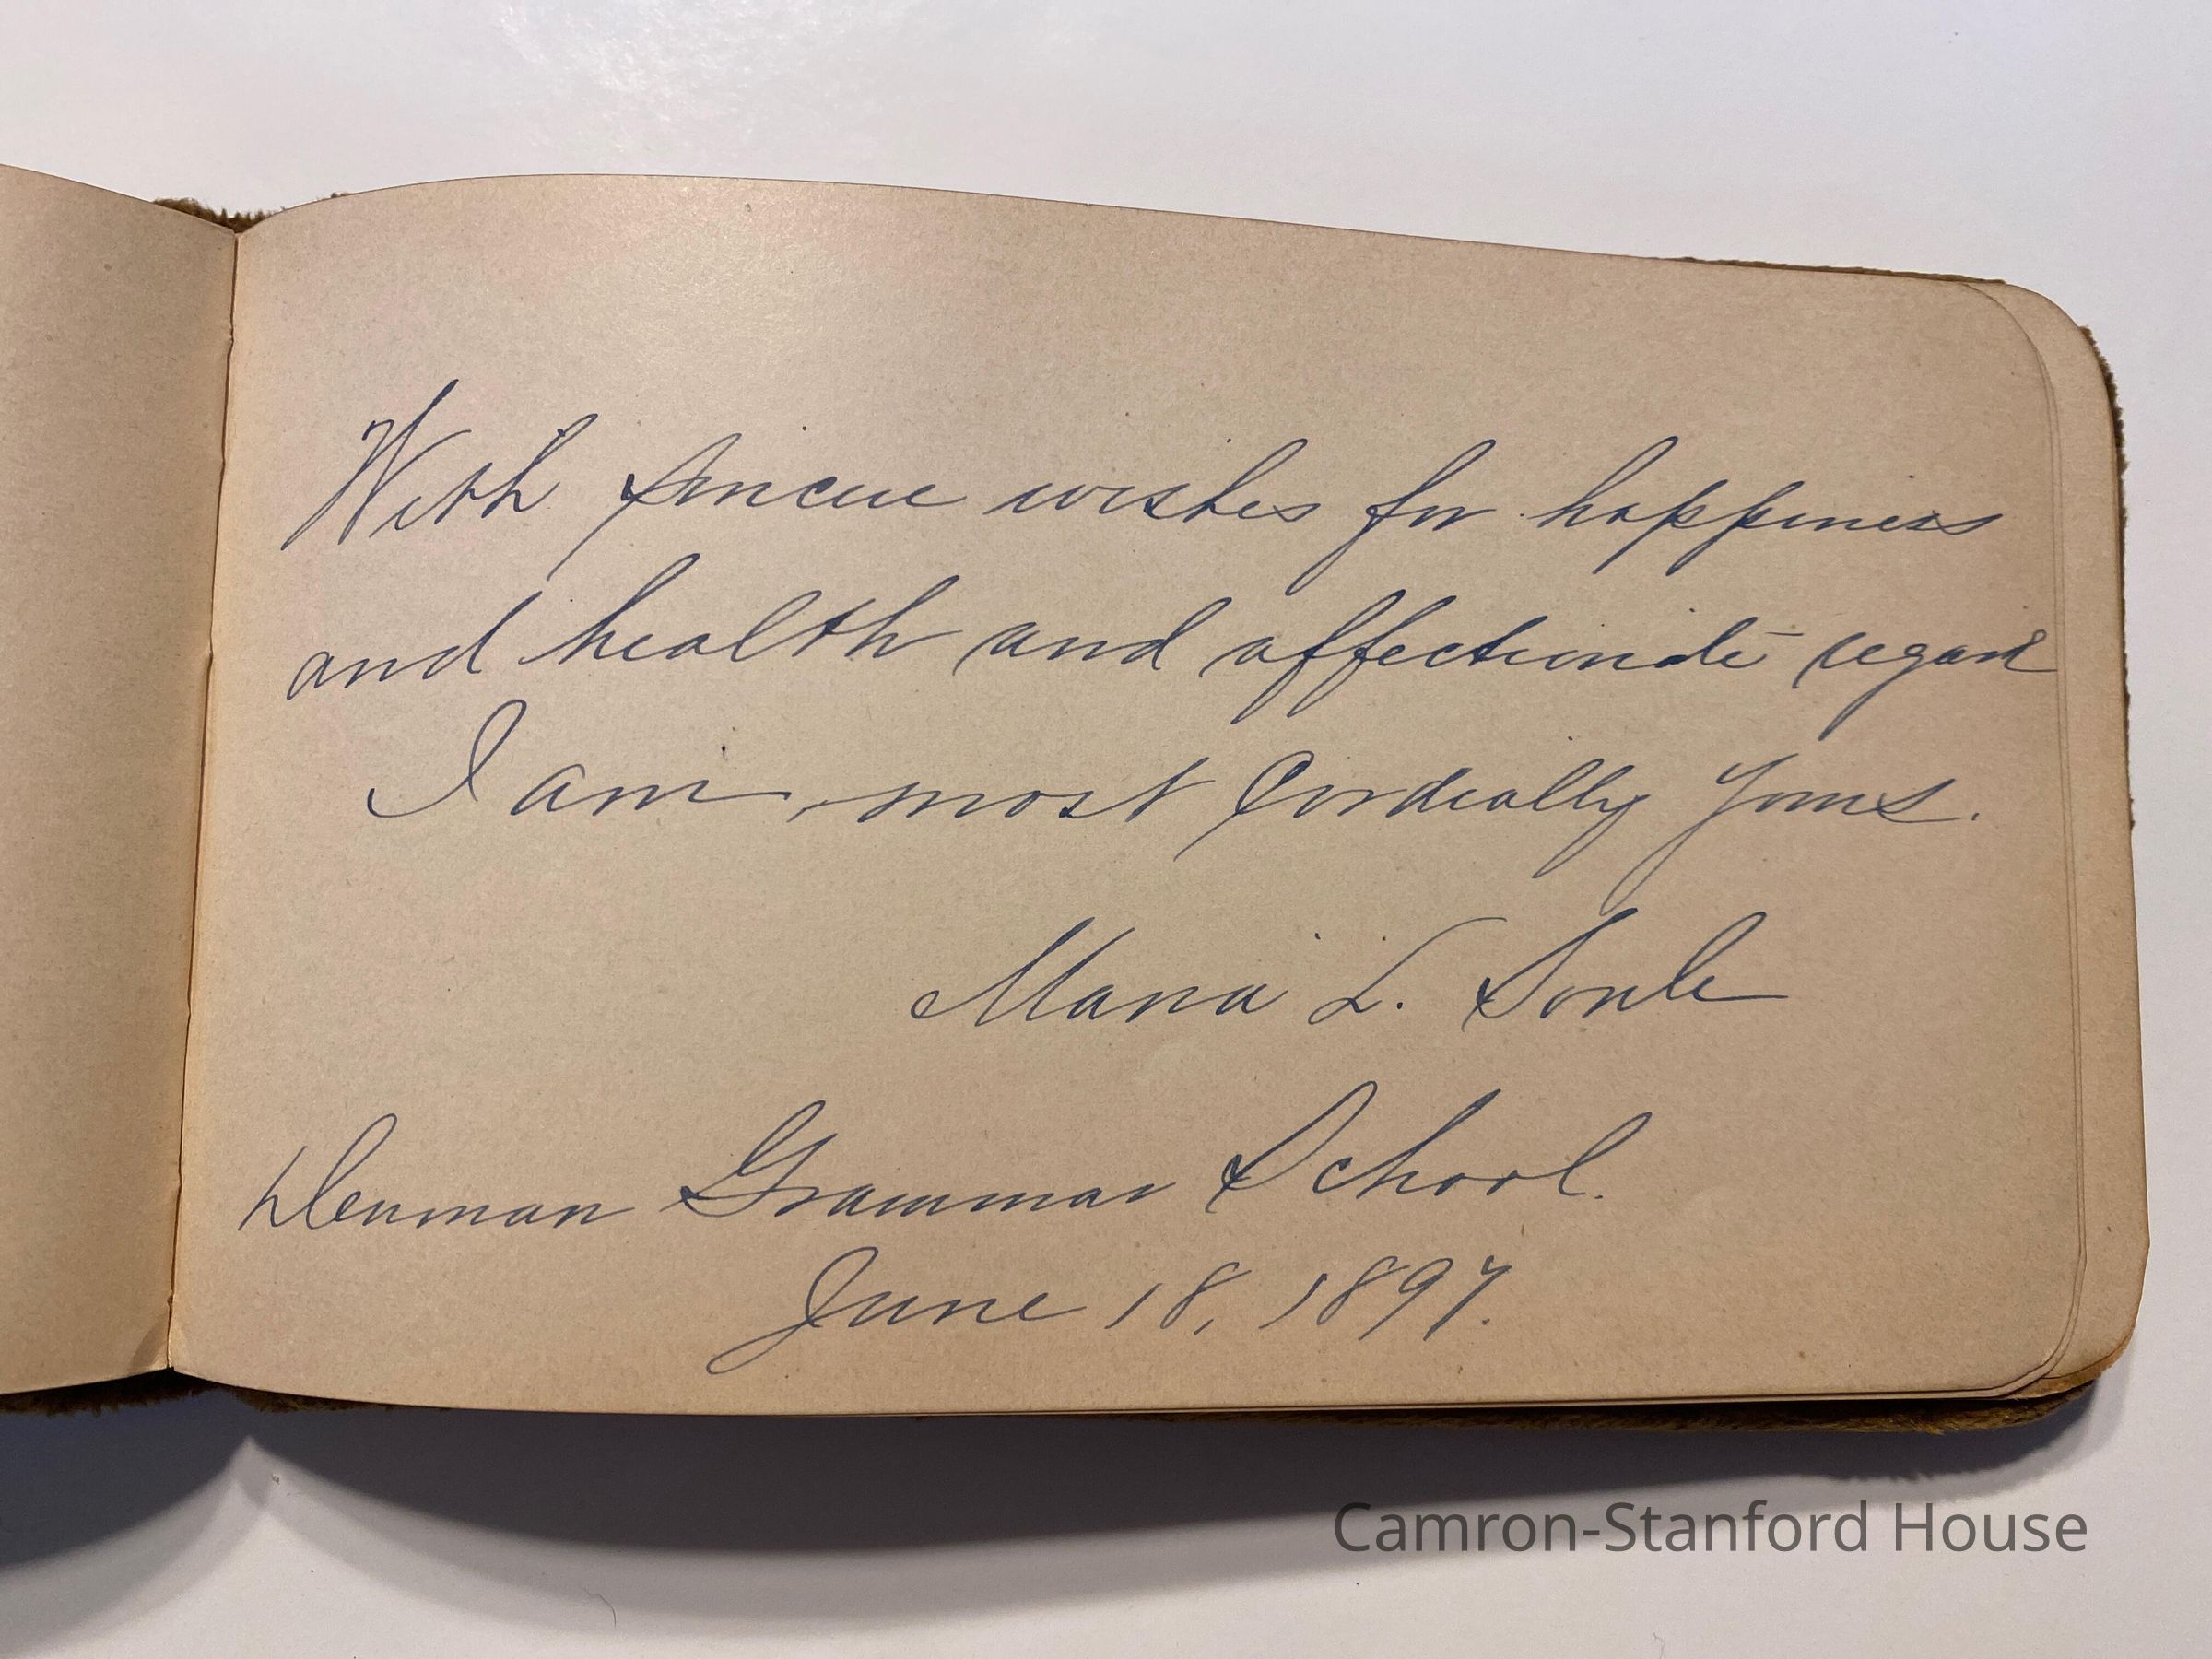 With sincere wishes for happiness
and health and affectionate regard
I am, most Cordially Yours.
Maria L. Soule
Denman Grammar School.
June 18, 1897.
Camron-Stanford House